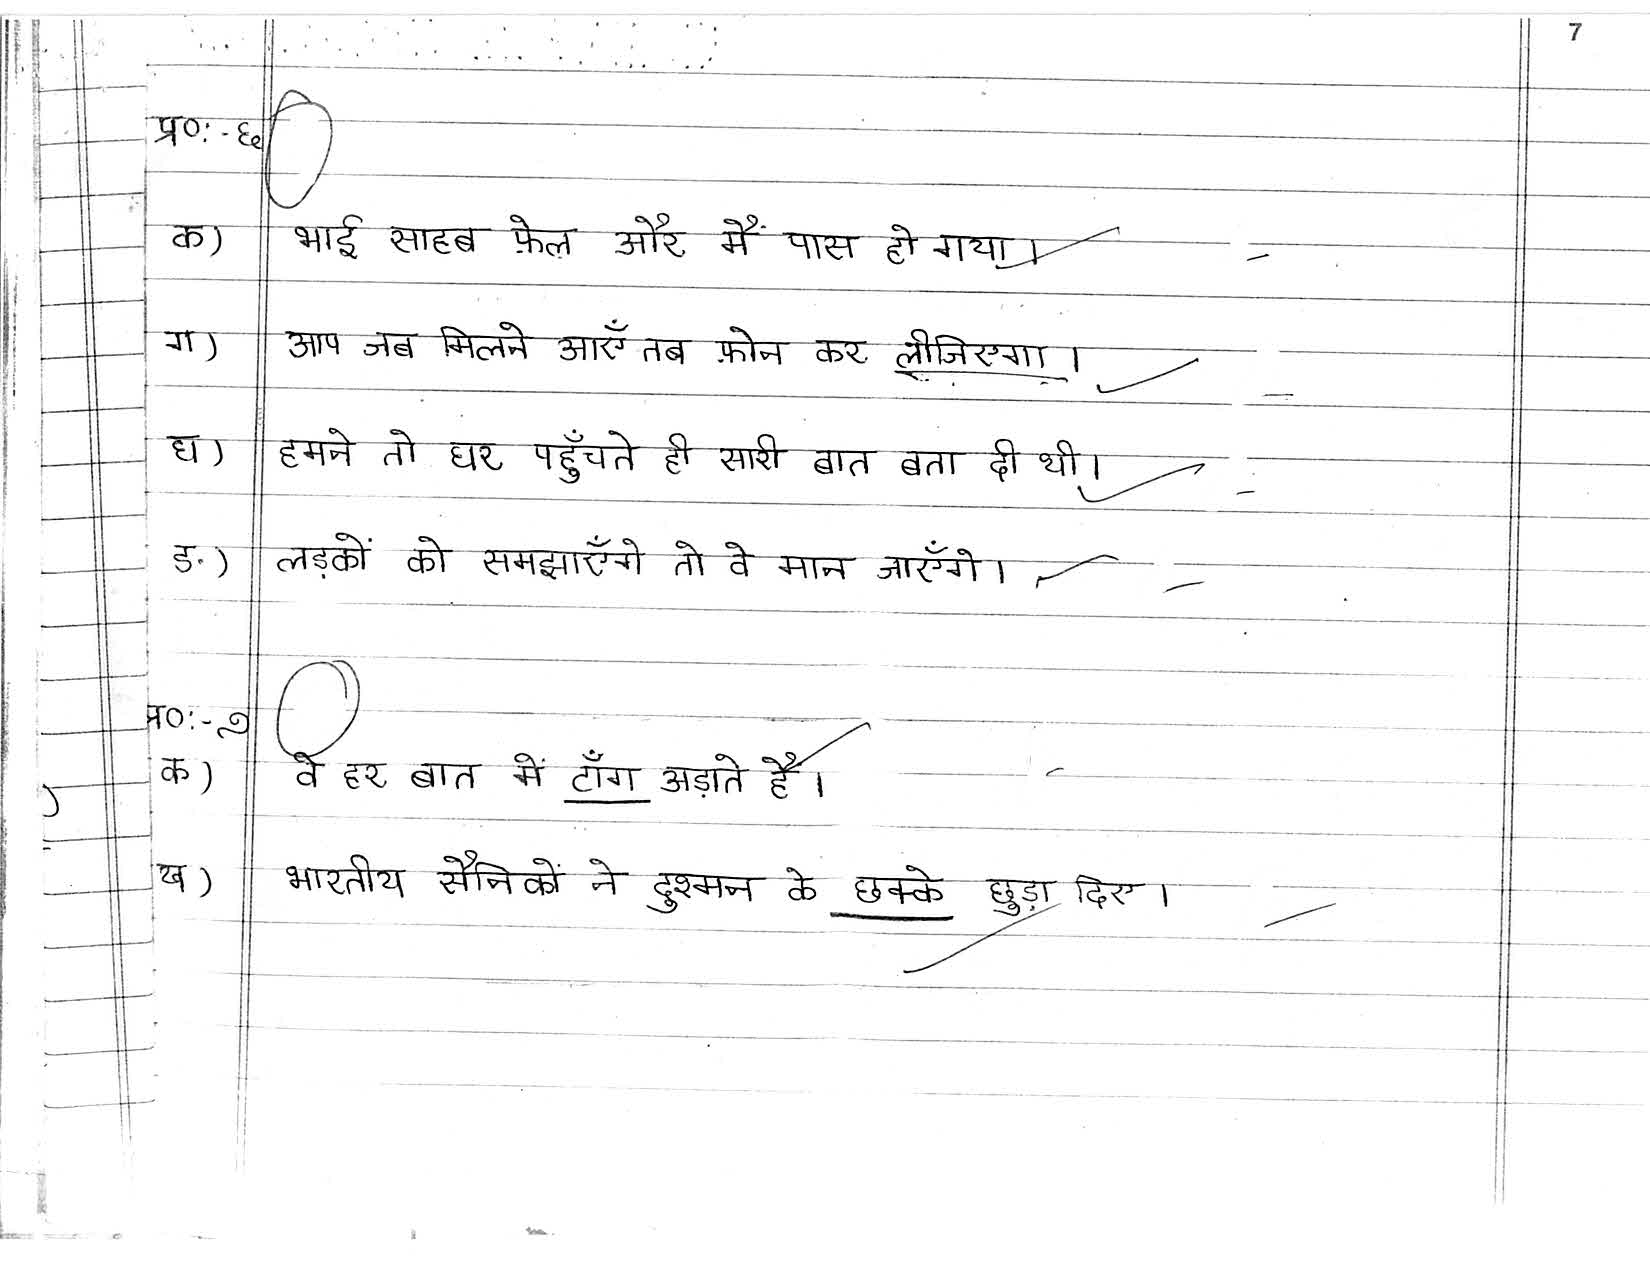 7
प्र०:-६
क) भाई साहब फ़ेल और मैं पास हो गया।
ग) आप जब मिलने आएँ तब फ़ोन कर लीजिएगा।
घ) हमने तो घर पहुँचते ही सारी बात बता दी थी।
ङ) लड़कों को समझाएँगे तो वे मान जाएँगे।
प्र०:-७
क) वे हर बात में टाँग अड़ाते हैं।
ख) भारतीय सैनिकों ने दुश्मन के छक्के छुड़ा दिए।